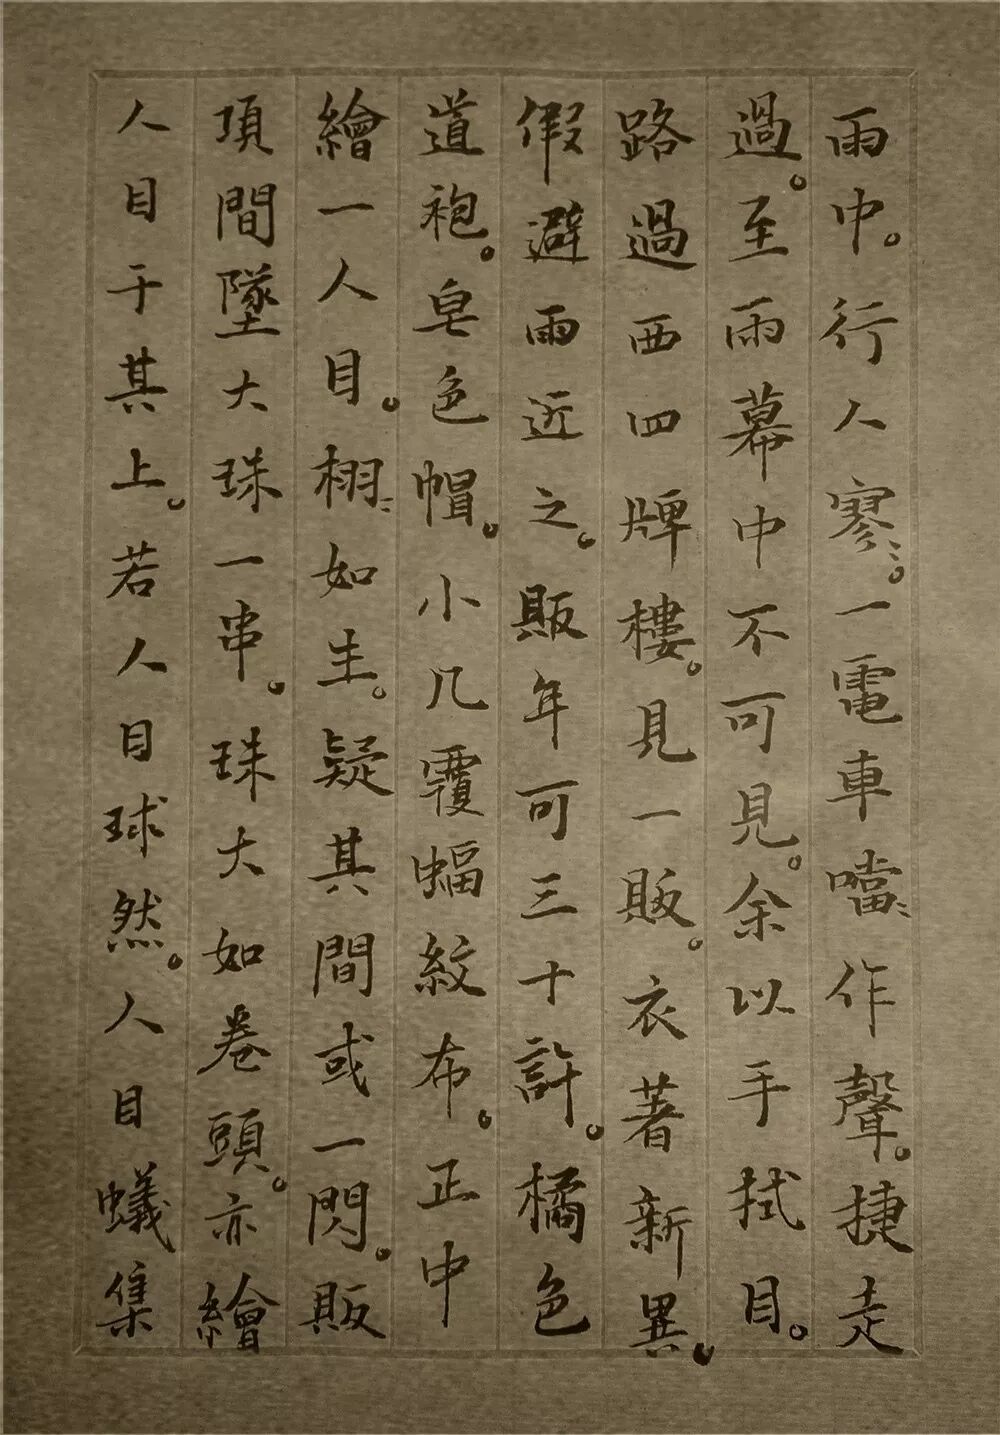 雨中。行人寥〻。一電車噹〻作聲。捷走
過。至雨幕中不可見。余以手拭目。
路過西四牌樓。見一販。衣著新異。
假避雨近之。販年可三十許。橘色
道袍。皂色帽。小几覆蝠紋布。正中
繪一人目。栩〻如生。疑其間或一閃。販
項間墜大珠一串。珠大如卷頭。亦繪
人目于其上。若人目球然。人目蟻集